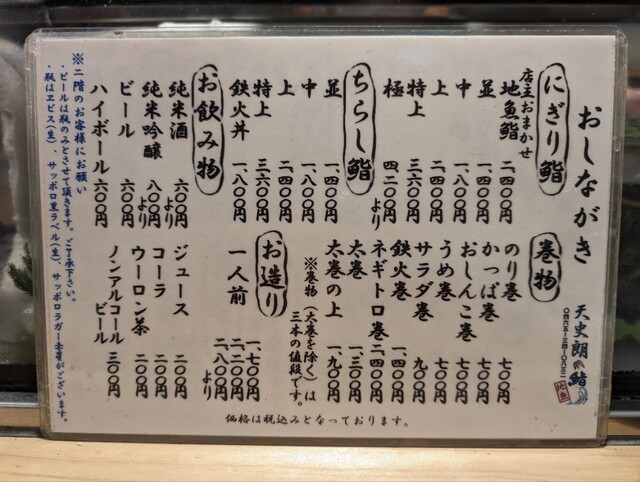 おしながき
天史朗鮨
地魚
にぎり鮨
店主おまかせ
地魚鮨 二、四〇〇円
並 一、四〇〇円
中 一、八〇〇円
上 二、四〇〇円
特上 三六〇〇円
極 四、二〇〇円より
ちらし鮨
並 一、四〇〇円
中 一、八〇〇円
上 二、四〇〇円
特上 三六〇〇円
鉄火丼 一、八〇〇円
お飲み物
純米酒 六〇〇円より
純米吟醸 八〇〇円より
ビール 六〇〇円
ハイボール 六〇〇円
巻物
のり巻 七〇〇円
かっぱ巻 七〇〇円
おしんこ巻 七〇〇円
うめ巻 七〇〇円
サラダ巻 九〇〇円
鉄火巻 一、四〇〇円
ネギトロ巻 二、四〇〇円
太巻 一、三〇〇円
太巻の上 一、九〇〇円
※巻物(太巻を除く)は
三本の値段です。
お造り
一人前 一、七〇〇円
二、二〇〇円
二、八〇〇円より
ジュース 二〇〇円
コーラ 二〇〇円
ウーロン茶 二〇〇円
ノンアルコール
ビール 三〇〇円
※二階のお客様にお願い
・ビールは瓶のみとさせて頂きます。ご了承下さい。
・瓶はヱビス(生)、サッポロ黒ラベル(生)、サッポロラガー赤星がございます。
価格は税込みとなっております。